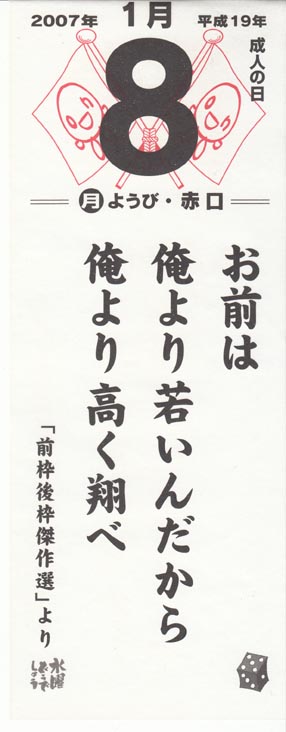 2007年 1月 平成19年
8
成人の日
月ようび・赤口
お前は
俺より若いんだから
俺より高く翔べ
「前枠後枠傑作選」より
水曜
どうで
しょう